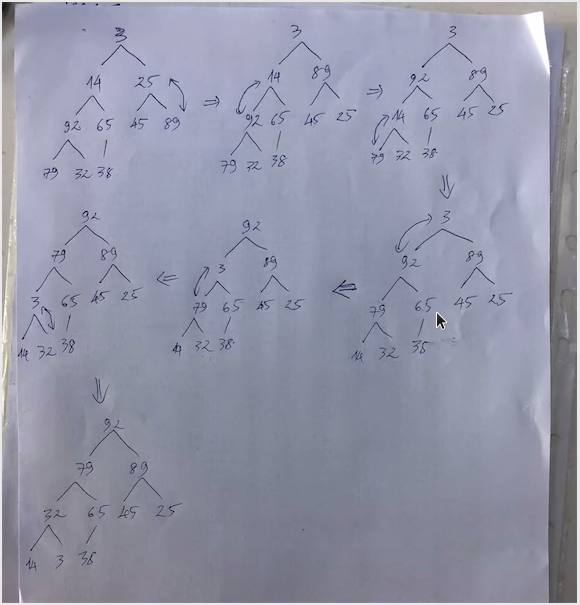 3
14 25
92 65 45 89
79 32 38
⇒
3
14 89
92 65 45 25
79 32 38
⇒
3
92 89
14 65 45 25
79 32 38
⇓
3
92 89
79 65 45 25
14 32 38
⇐
92
3 89
79 65 45 25
14 32 38
⇐
92
79 89
3 65 45 25
14 32 38
⇓
92
79 89
32 65 45 25
14 3 38